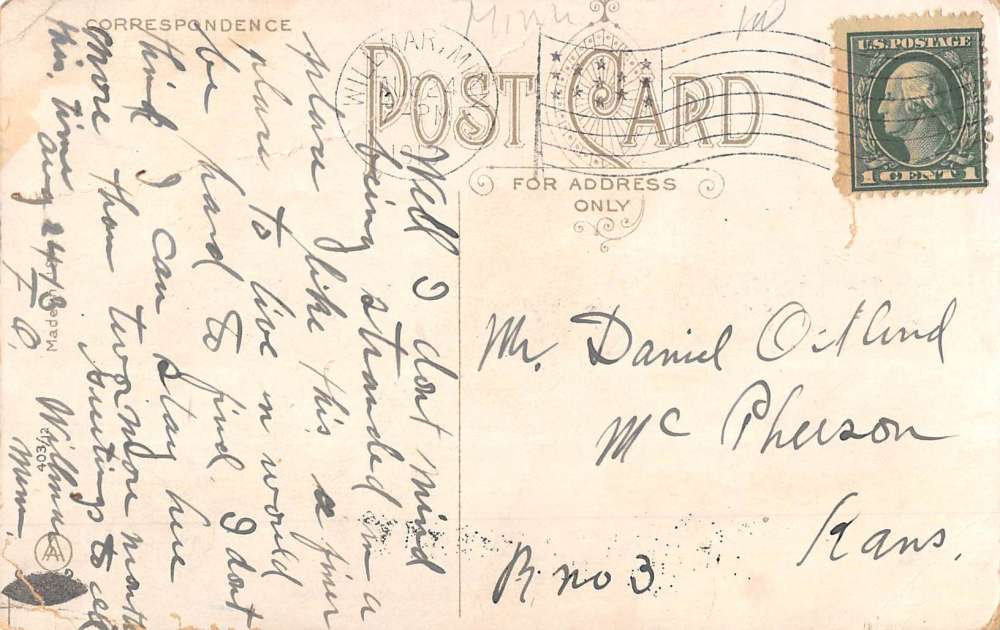 CORRESPONDENCE
POST CARD
FOR ADDRESS
ONLY
U.S. POSTAGE
1 CENT 1
WILLMAR, MINN
Minn
Well I dont mind
being stranded in a
place like this a finer
place to live in would
be hard to find. I dont
think I can stay here
more than two more month
this time
greetings to all
aug 24/13
Willmar
Minn.
Mr. Daniel
Mc Pherson
Kans.
R no 3
Made
403/2